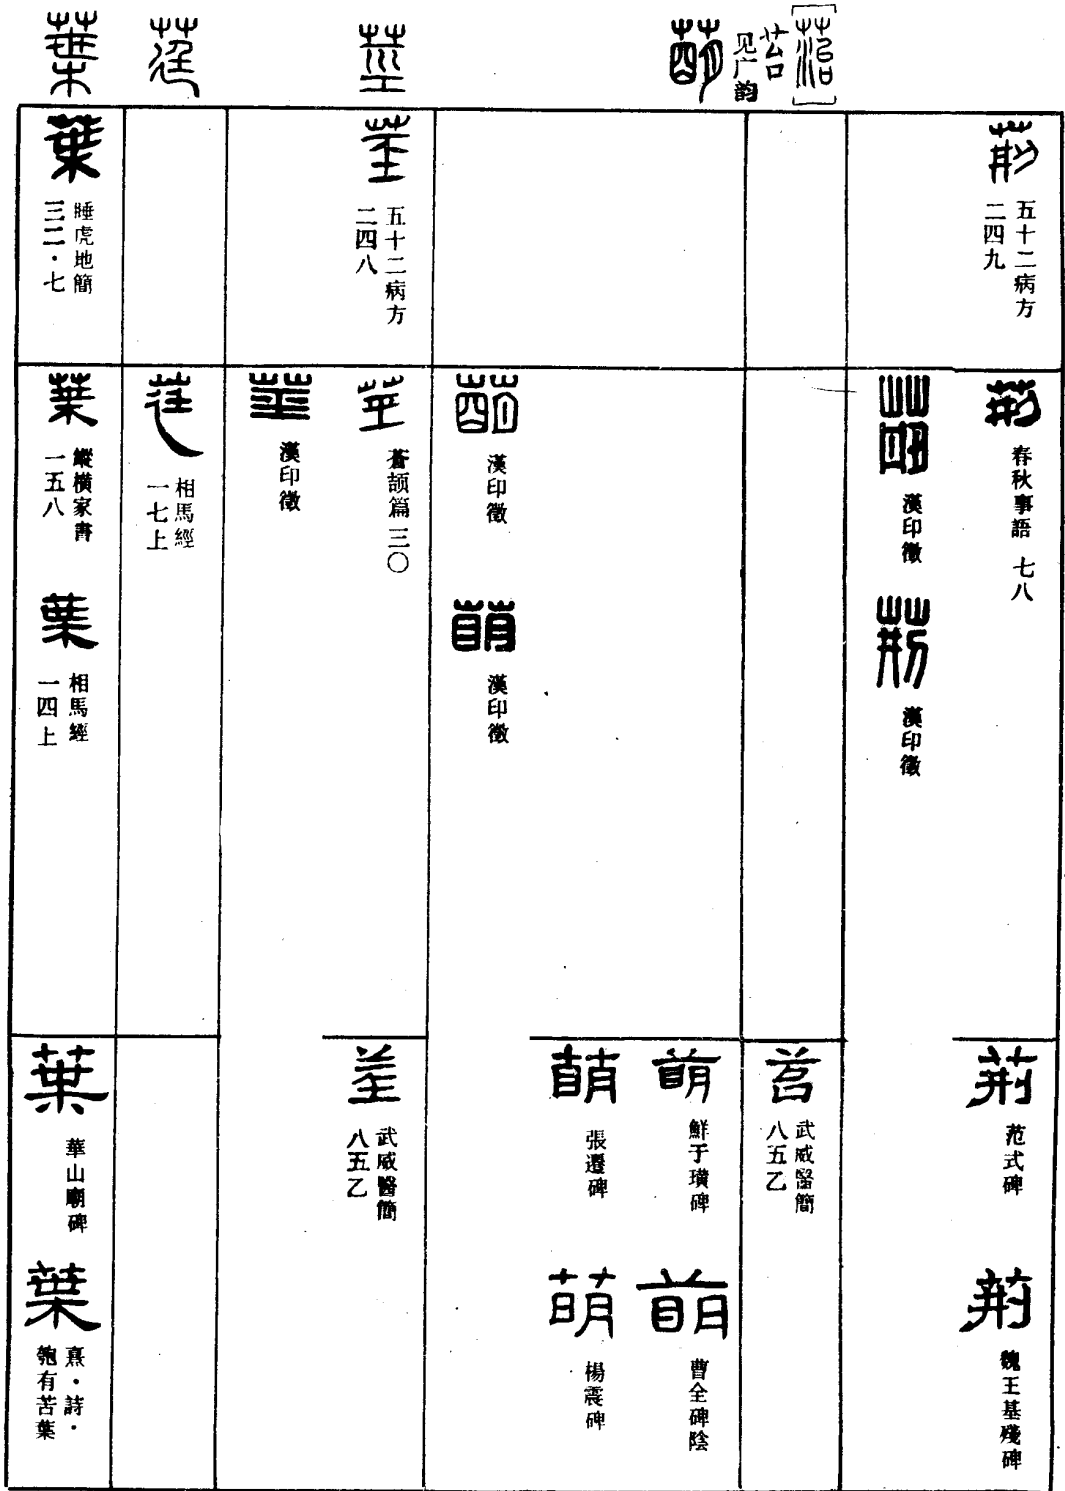 [菭]
苔
见广韵
萌
莖
莛
葉
荊
五十二病方
二四九
莖
五十二病方
二四八
葉
睡虎地簡
三二·七
荊
春秋事語 七八
漢印徵
荊
漢印徵
萌
漢印徵
萌
漢印徵
莖
蒼頡篇 三〇
莖
漢印徵
莛
相馬經
一七上
葉
縱橫家書
一五八
葉
相馬經
一四上
荊
范式碑
荊
魏王基殘碑
武威醫簡
八五乙
萌
鮮于璜碑
萌
曹全碑陰
萌
張遷碑
萌
楊震碑
莖
武威醫簡
八五乙
葉
華山廟碑
葉
熹·詩·
匏有苦葉